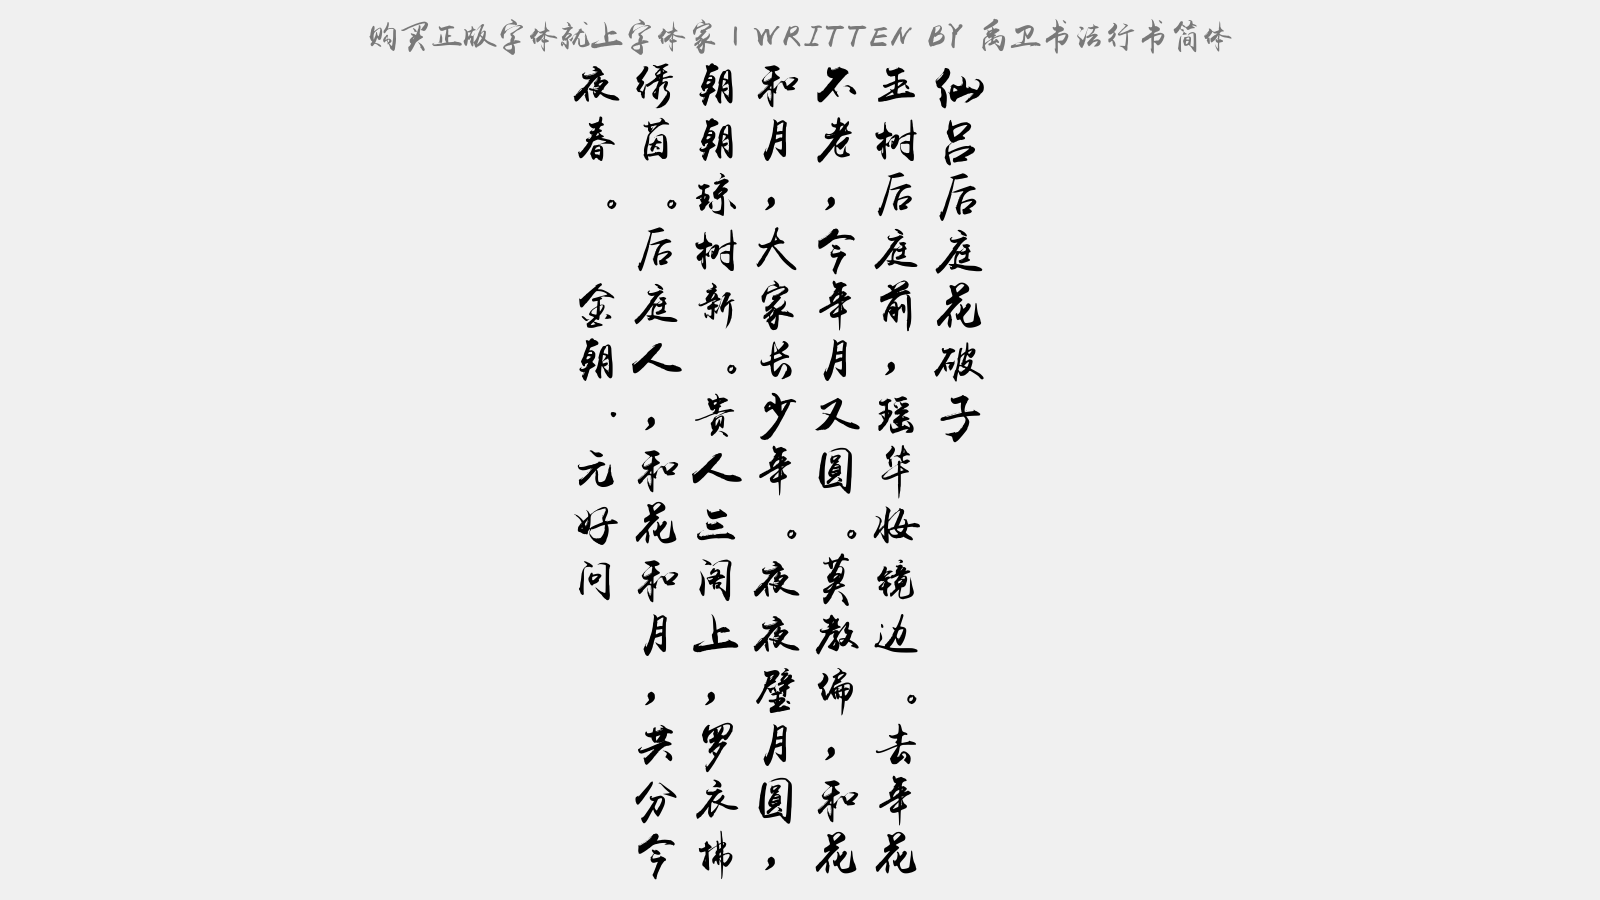 购买正版字体就上字体家 | WRITTEN BY 禹卫书法行书简体
仙吕后庭花破子
玉树后庭前，瑶华妆镜边。去年花
不老，今年月又圆。莫教偏，和花
和月，大家长少年。夜夜璧月圆，
朝朝琼树新。贵人三阁上，罗衣拂
绣茵。后庭人，和花和月，共分今
夜春。 金朝·元好问